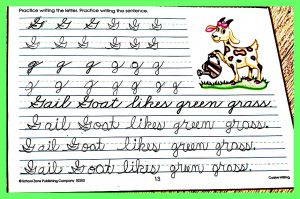 Practice writing the letter. Practice writing the sentence.
G G G G G G
G G G G G G
g g g g g g
g g g g g g g g
Gail Goat likes green grass.
Gail Goat likes green grass.
Gail Goat likes green grass.
Gail Goat likes green grass.
©School Zone Publishing Company 02053 13 Cursive Writing